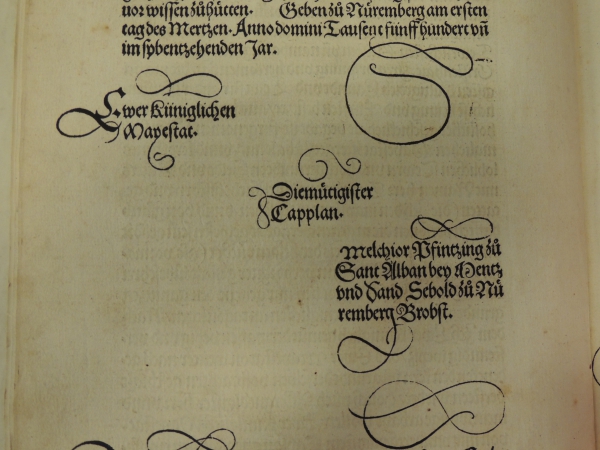 vor wissen zůhütten. Geben zů Nüremberg am ersten
tag des Mertzen. Anno domini Tausent fünffhundert vñ
im sybentzehenden Jar.
Ewer Küniglichen
Mayestat.
Diemütigister
Capplan.
Melchior Pfintzing zů
Sant Alban bey Mentz
vnd Sand Sebold zů Nü
remberg Brobst.